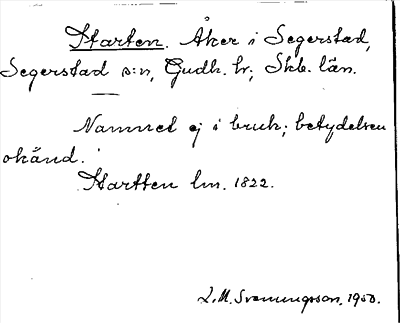 Starten. Åker i Segerstad,
Segerstad s:n, Gudh. hr; Skb. län.
Namnet ej i bruk; betydelsen
okänd.
Startten lm. 1822.
L. M. Svenungsson. 1950.